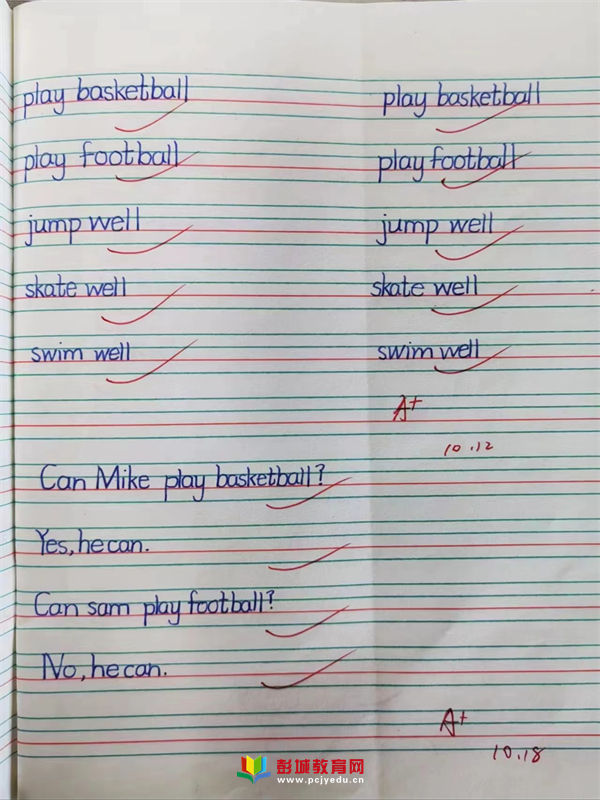 play basketball play basketball
play football play football
jump well jump well
skate well skate well
swim well swim well
A+
10.12
Can Mike play basketball?
Yes, he can.
Can sam play football?
No, he can.
A+
10.18
彭城教育网
www.pcjyedu.cn